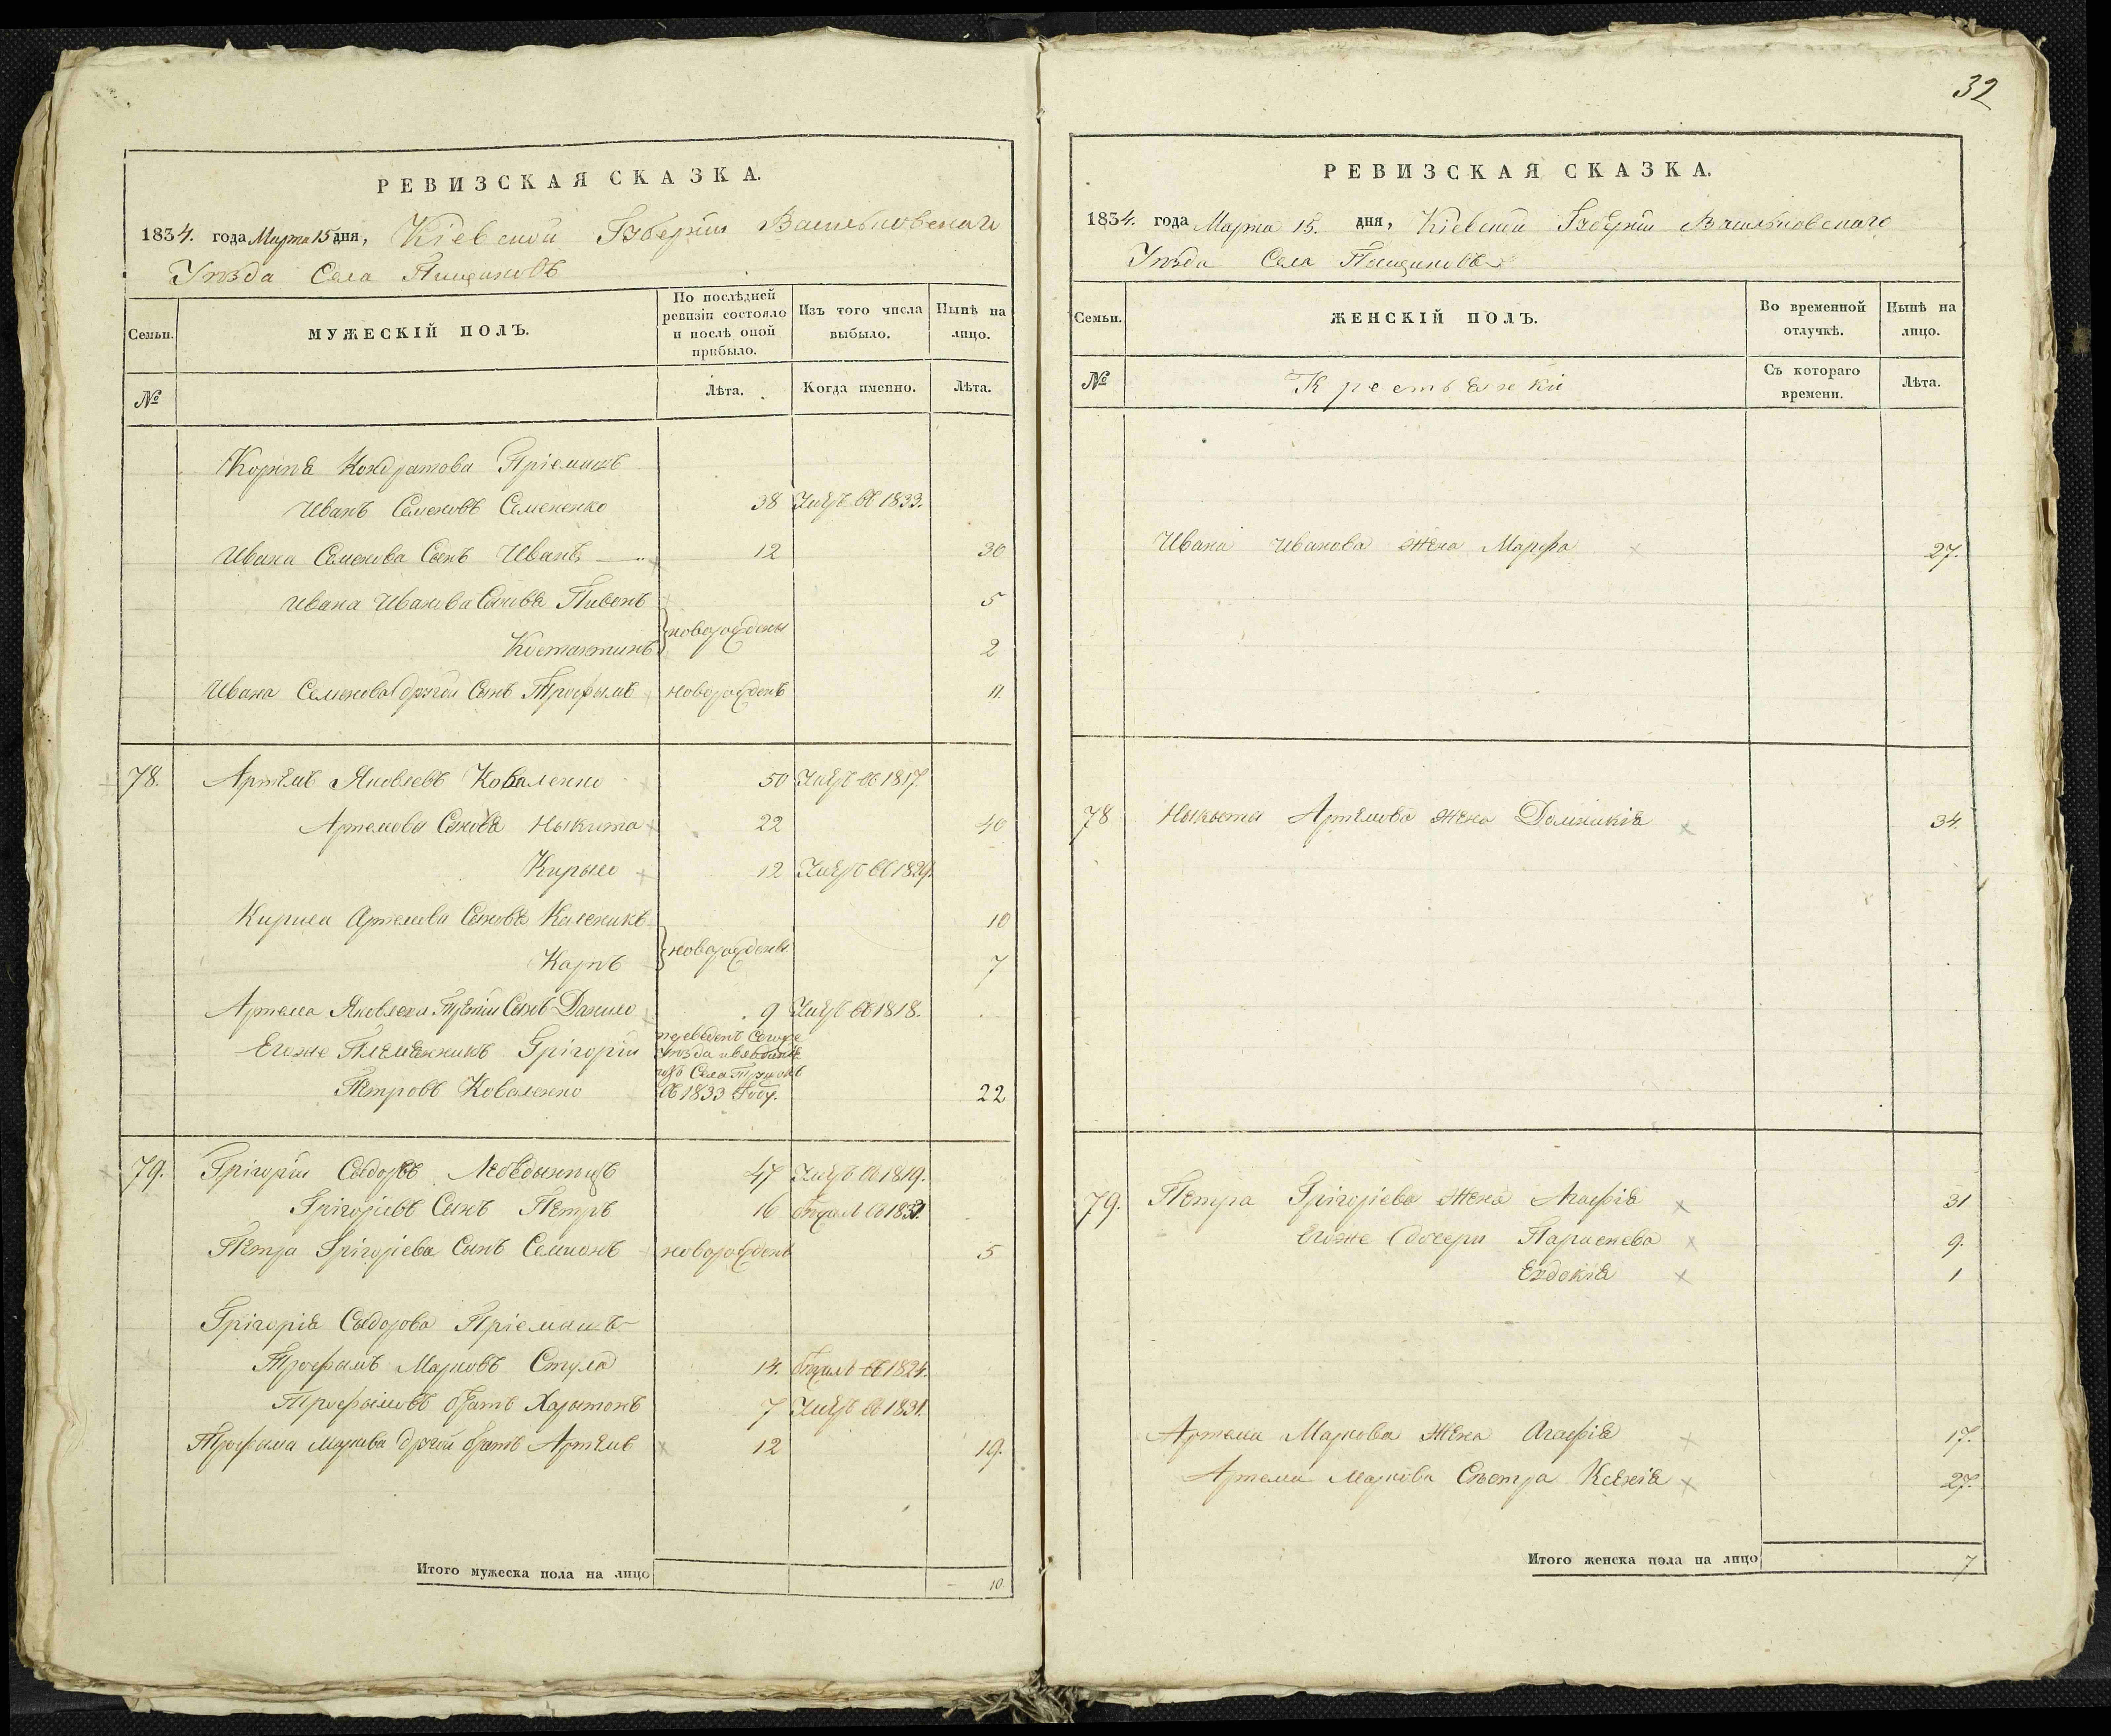 РЕВИЗСКАЯ СКАЗКА.
1834. года Марта 15 дня, Кіевской Губерніи Васильковскаго
Уѣзда Села Пищиковъ
Семьи.
МУЖЕСКІЙ ПОЛЪ.
По послѣдней ревизіи состояло и послѣ оной прибыло.
Изъ того числа выбыло.
Нынѣ на лицо.
№
Лѣта.
Когда именно.
Лѣта.
Корнѣя Кондратова Пріемышъ
Иванъ Семеновъ Семененко 38 Умеръ въ 1833.
Ивана Семенова Сынъ Иванъ 12 30
Ивана Иванова Сыновя Пивонъ 5
новорождены
Костантинъ 2
Ивана Семенова другой Сынъ Трофымъ новорожденъ 11.
78. Артемъ Яковлевъ Коваленко 50 Умеръ въ 1817.
Артемовы Сыновя Ныкита 22 40
Кирыло 12 Умеръ въ 1829.
Кирила Артемова Сыновя Каленикъ 10
новорождены
Карпъ 7
Артема Яковлева Третій Сынъ Данило 9 Умеръ въ 1818.
Егоже Племенникъ Григорій
Петровъ Коваленко
переведенъ Сегоже
уѣзда
Села
въ 1833 Году.
22
79. Григорій Сыдоровъ Лебедынецъ 47 Умеръ въ 1819.
Григоріевъ Сынъ Петръ 16 въ 1832.
Петра Григоріева Сынъ Семионъ новорожденъ 5
Григорія Сыдорова Пріемышъ
Трофымъ Марковъ Стула 14. въ 1824.
Трофымовъ братъ Харытонъ 7 Умеръ въ 1831.
Трофыма Маркова другой братъ Артемъ 12 19.
Итого мужеска пола на лицо 10.
32
РЕВИЗСКАЯ СКАЗКА.
1834. года Марта 15. дня, Кіевской Губерніи Васильковскаго
Уѣзда Села Пищиковъ
Семьи.
ЖЕНСКІЙ ПОЛЪ.
Во временной отлучкѣ.
Нынѣ на лицо.
№
Крестьянски
Съ котораго времени.
Лѣта.
Ивана Иванова Жена Марфа 27.
78 Ныкыты Артемова Жена Домникія 34.
79. Петра Григоріева Жена Агафія 31
Егоже дочери Параскева 9.
Евдокія 1
Артема Маркова Жена Агафія 17.
Артема Маркова Сѣстра Ксенія 27.
Итого женска пола на лицо 7